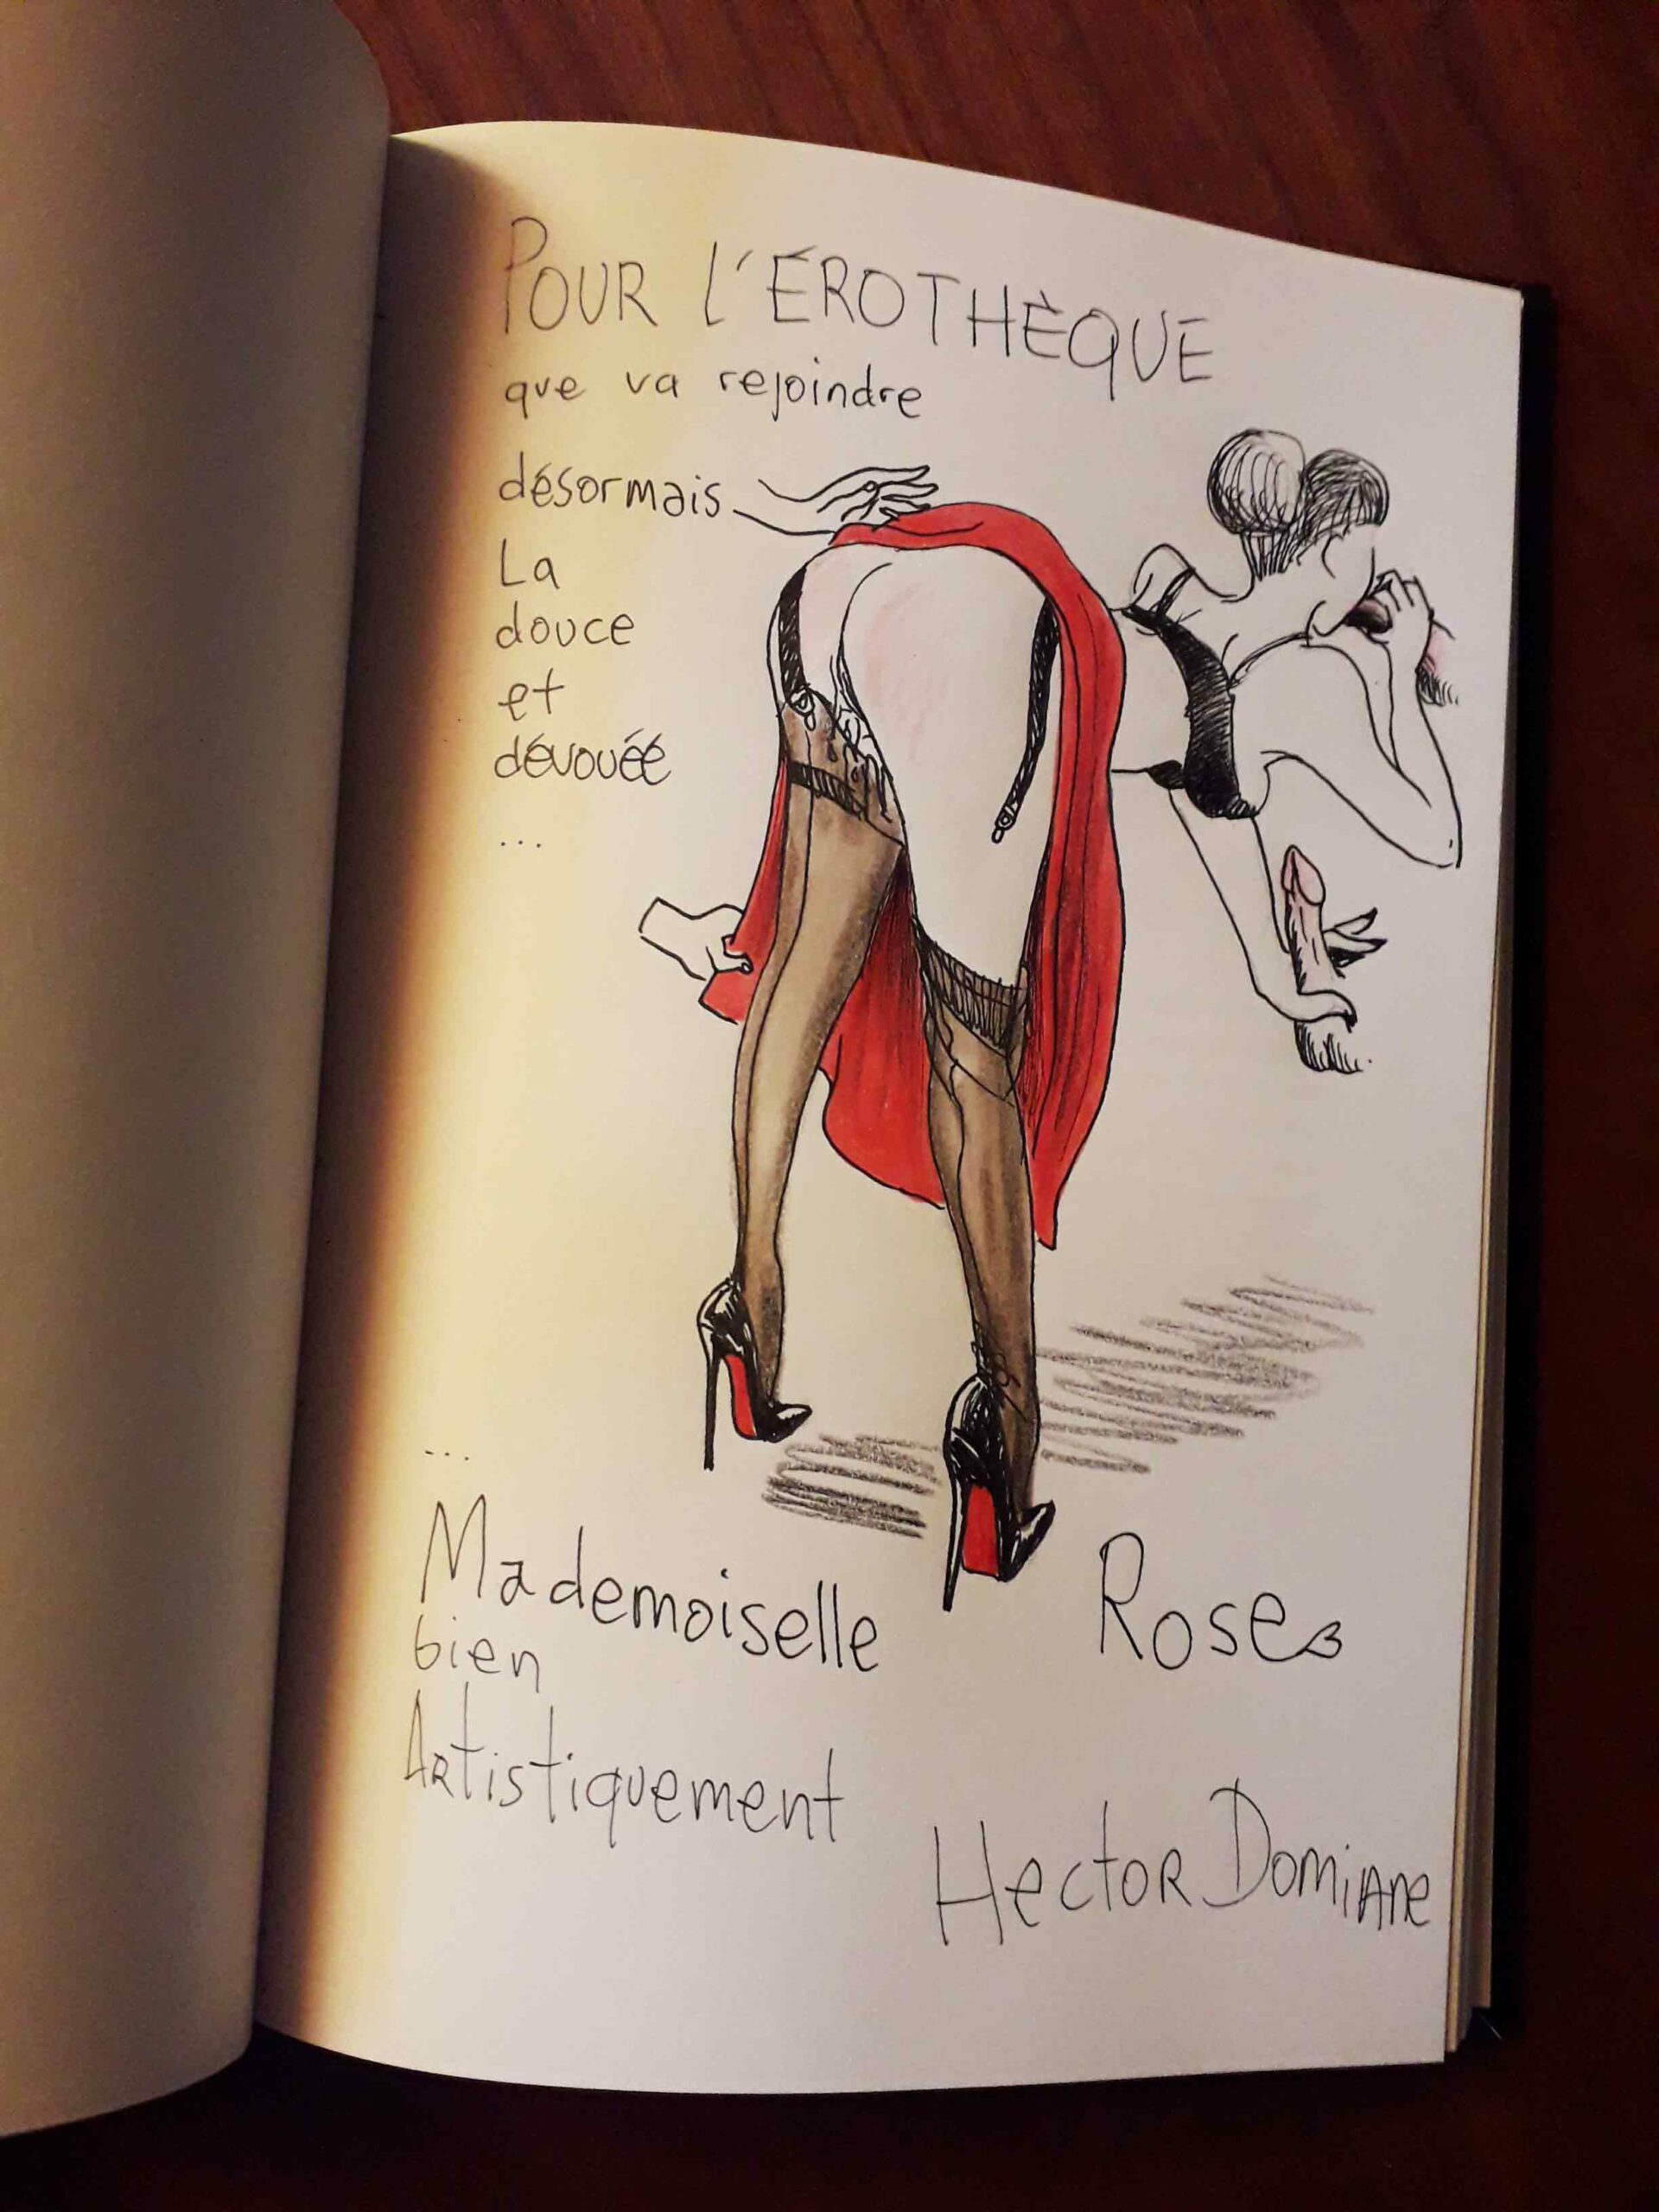 POUR L'ÉROTHÈQUE
que va rejoindre
désormais
La
douce
et
dévouée
...
...
Mademoiselle Rose
bien
Artistiquement
Hector Domiane